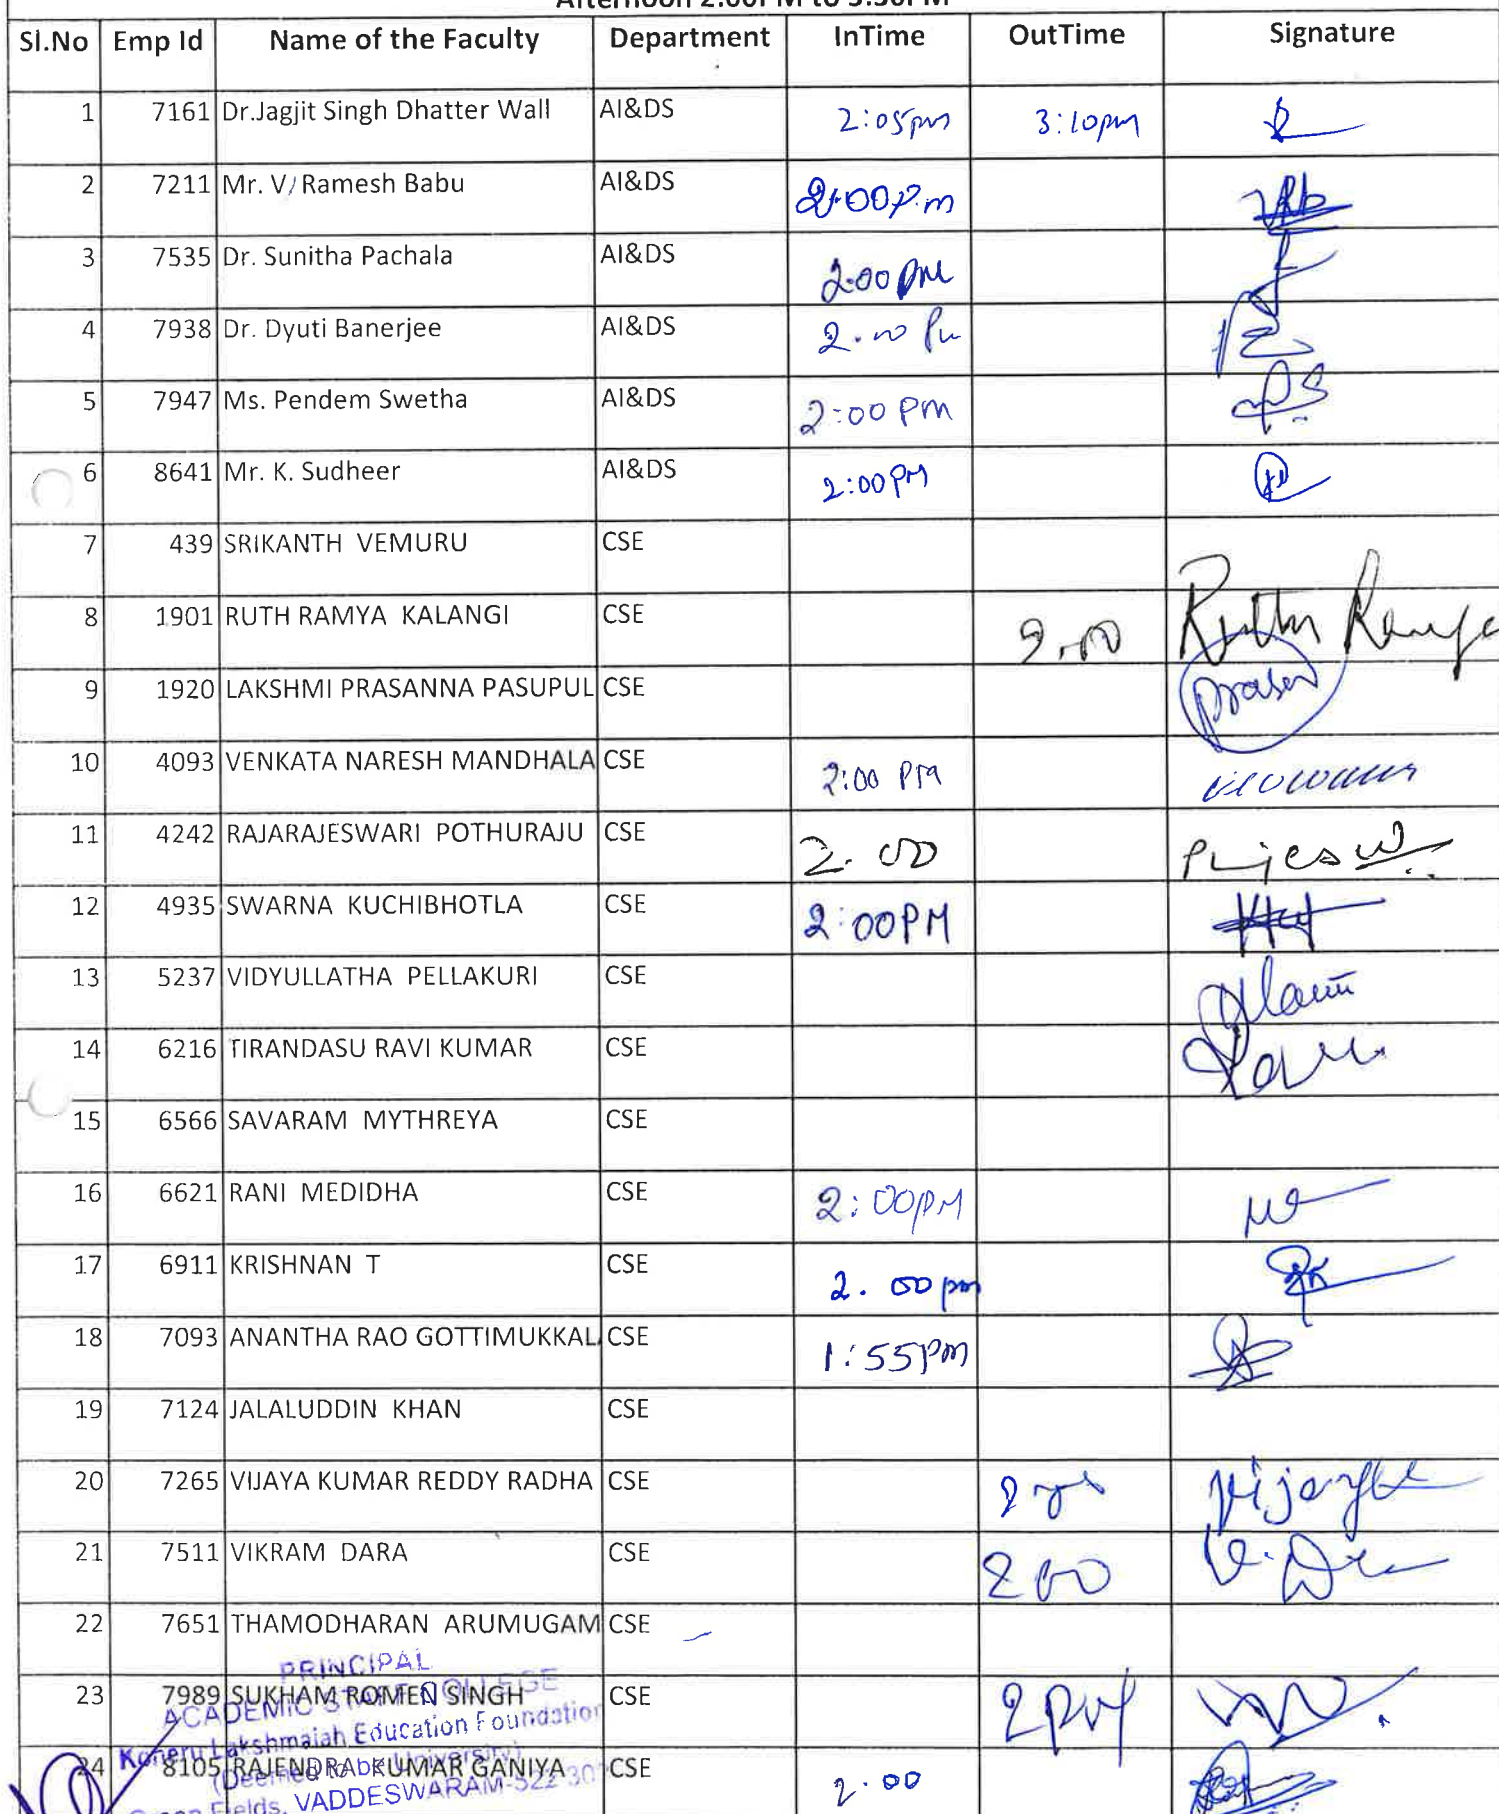 Afternoon 2:00PM to 5:30PM
Sl.No Emp Id Name of the Faculty Department InTime OutTime Signature
1 7161 Dr.Jagjit Singh Dhatter Wall AI&DS 2:05pm 3:10pm
2 7211 Mr. V. Ramesh Babu AI&DS 2:00P.m
3 7535 Dr. Sunitha Pachala AI&DS 2:00 PM
4 7938 Dr. Dyuti Banerjee AI&DS
5 7947 Ms. Pendem Swetha AI&DS 2:00 PM
6 8641 Mr. K. Sudheer AI&DS 2:00PM
7 439 SRIKANTH VEMURU CSE
8 1901 RUTH RAMYA KALANGI CSE 2.00 Ruth Ramya
9 1920 LAKSHMI PRASANNA PASUPUL CSE
10 4093 VENKATA NARESH MANDHALA CSE 2:00 PM
11 4242 RAJARAJESWARI POTHURAJU CSE 2.00
12 4935 SWARNA KUCHIBHOTLA CSE 2:00PM
13 5237 VIDYULLATHA PELLAKURI CSE
14 6216 TIRANDASU RAVI KUMAR CSE
15 6566 SAVARAM MYTHREYA CSE
16 6621 RANI MEDIDHA CSE 2:00PM
17 6911 KRISHNAN T CSE 2.00pm
18 7093 ANANTHA RAO GOTTIMUKKAL CSE 1:55pm
19 7124 JALALUDDIN KHAN CSE
20 7265 VIJAYA KUMAR REDDY RADHA CSE
21 7511 VIKRAM DARA CSE 200
22 7651 THAMODHARAN ARUMUGAM CSE
PRINCIPAL
23 7989 SUKHAM ROMEN SINGH CSE
ACADEMIC STAFF COLLEGE
Koneru Lakshmaiah Education Foundation
24 8105 RAJENDRA KUMAR GANIYA CSE 2.00
(Deemed to be University)
Green Fields, VADDESWARAM-522 30